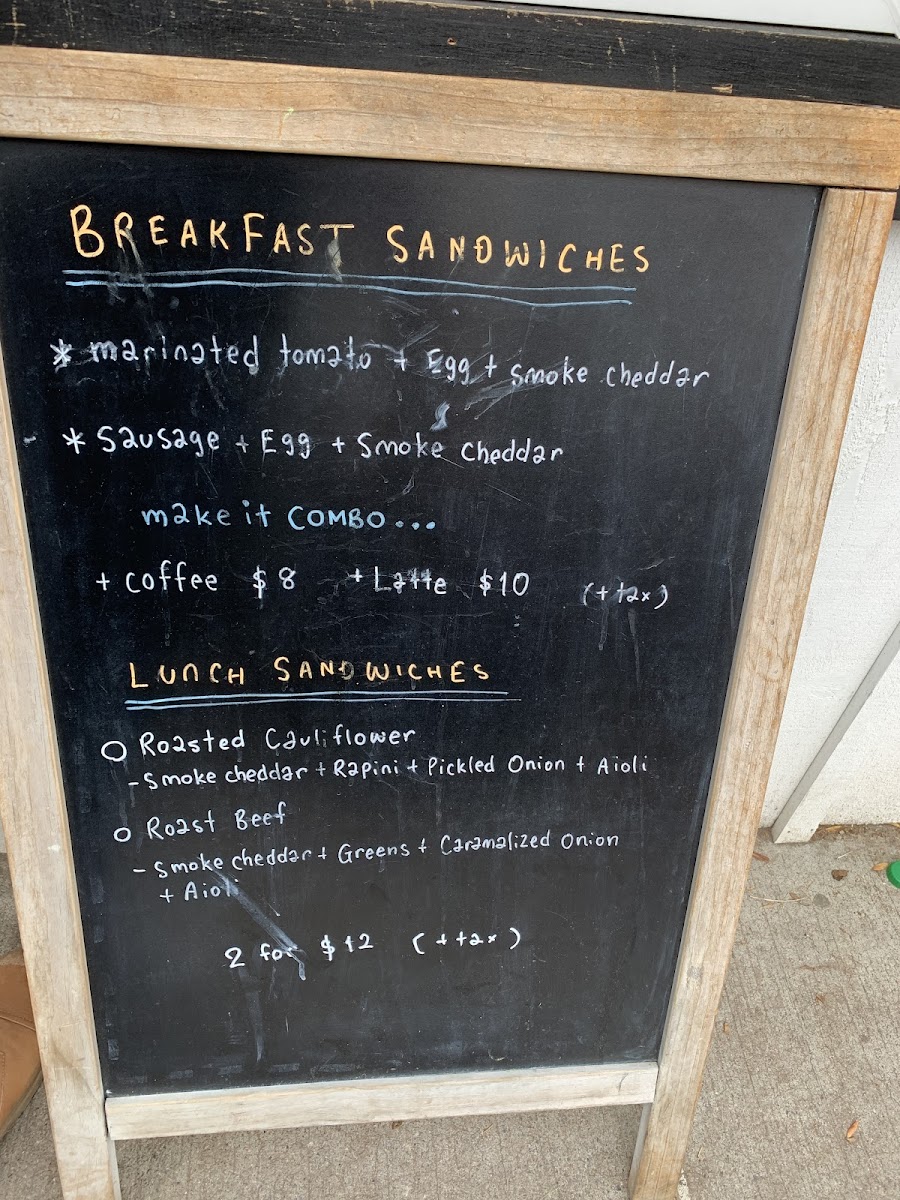 BREAKFAST SANDWICHES
* marinated tomato + Egg + smoke cheddar
* Sausage + Egg + Smoke cheddar
make it COMBO...
+ coffee $8 + Latte $10 (+ tax)
LUNCH SANDWICHES
O Roasted Cauliflower
- Smoke cheddar + Rapini + Pickled Onion + Aioli
O Roast Beef
- Smoke cheddar + Greens + Caramalized Onion
+ Aioli
2 for $12 (+ tax)